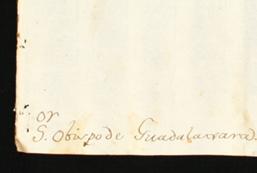 or
S. Obispo de Guadalaxara.